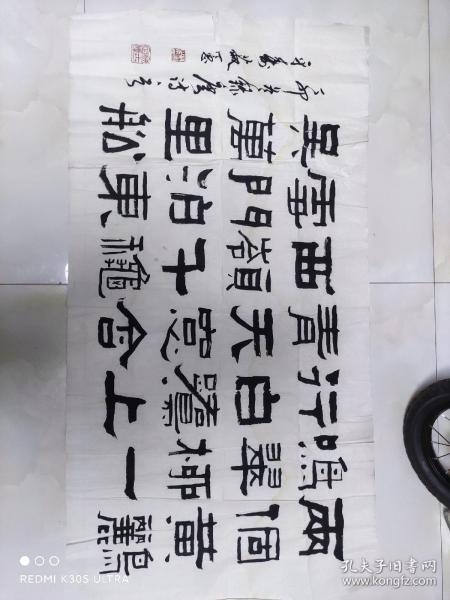 兩個黃鸝
鳴翠柳一
行白鷺上
青天窓含
西嶺千龝
雪門泊東
吳萬里船
REDMI K30S ULTRA
孔夫子旧书网
www.kongfz.com